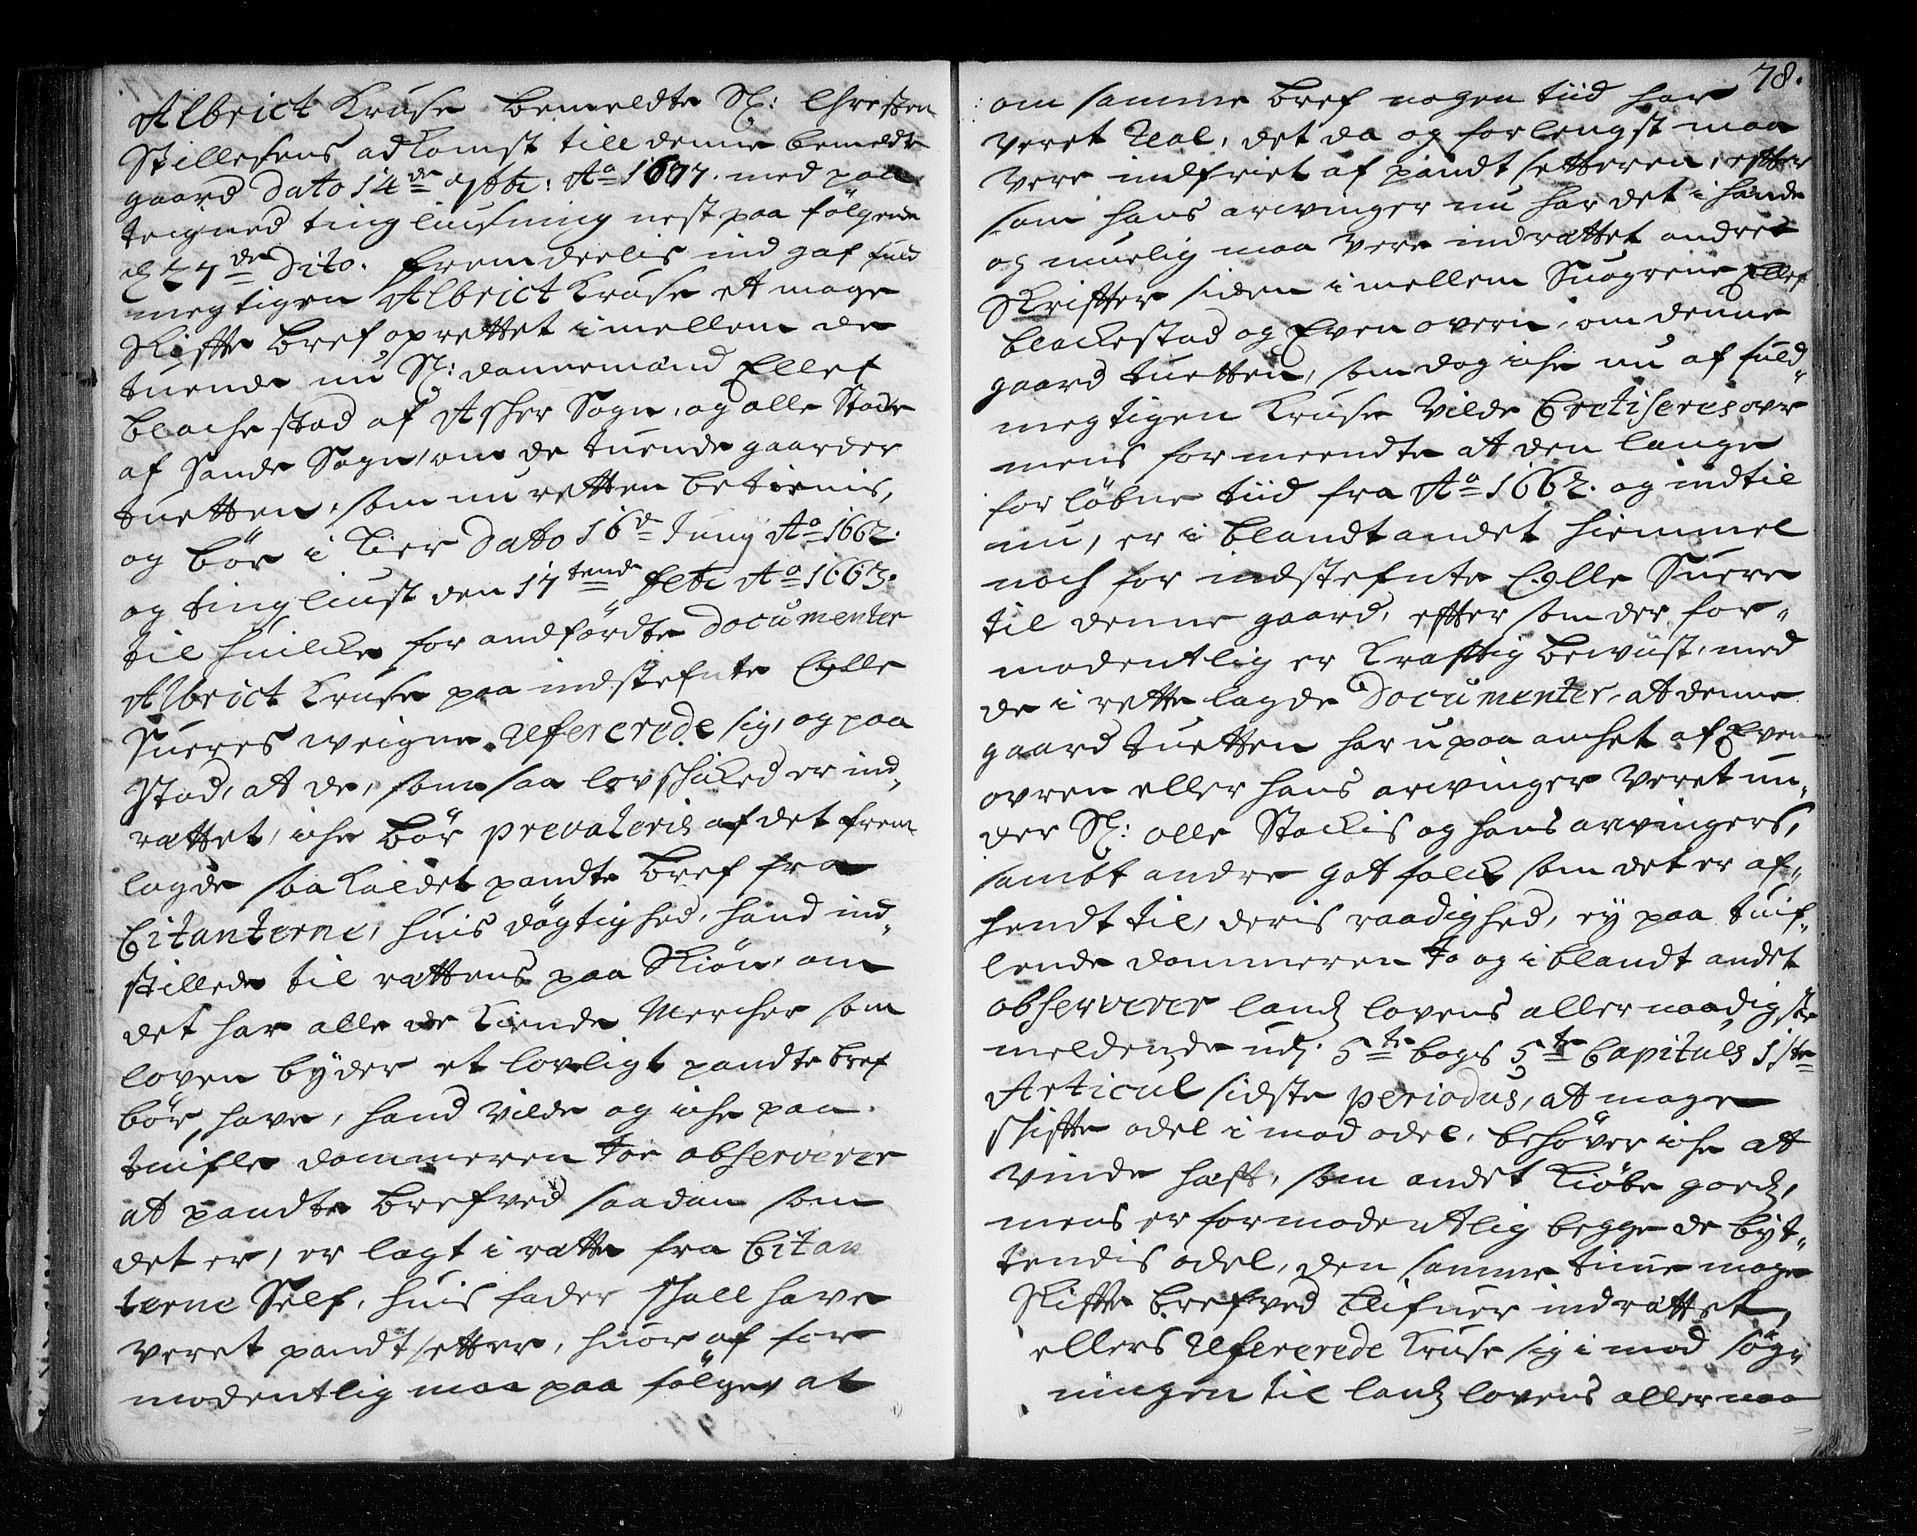 Albrict Kruse bemeldte Sl: Chresten
Stillesens adkomst till denne bemelte
gaard dato 14de 7br: Ao 1677. med paa
teigned tingliusning nest paa følgende
d. 27de dito. fremdeelis ind gaf fuld
megtigen Albrict Kruse et mage
Skiffte bref oprettet imellem de
tuende nu Sl: dannemænd Ellef
blachestad af Asker Sogn, og olle Stocke
af Sande Sogn, om de tuende gaarder
tuetten, som nu retten betienis,
og bør i Lier dato 16de Juny Ao 1662.
og tingliust den 17tende febr Ao 1663.
til huilcke for andførdte Documenter
Albrict Kruse paa indstefnte Colle
Sueres weigne Refererede sig, og paa
stod, at de, som saa lovskicked er ind„
rættet, iche bør prevaleris af det frem
lagde saa kaldet pandte bref fra
Citanterne, huis døgtighed, hand ind„
stillede til rættens paa Skiøn, om
det har alle de Kiende Mercher som
loven byder et lovligt pandte bref
bør, have, hand vilde og iche paa
tuifle dommeren Jo observerer
at pandte brefved saadan som
det er, er lagt i rætte fra Citan
terne Self, huis fader skall have
veret pandtsetter, huor af for
modentlig maa paa følger at
78.
om samme bref nogen tiid har
veret Real, det da og forlengst maa
vere indfriet af pandt setteren, efter
som hans arvinger nu har det i hænde
og muelig maa vere indrættet andre
Skriffter siden imellem Suogrene Ellef
blackestad og Even overn, om denne
gaard tuetten, som dog iche nu af fuld„
megtigen Kruse vilde Cretiseres ovr
mens formeendte at den lange
forløbne tiid fra Ao 1662. og indtil
nu, er i blandt andet hiemmel
noch for indstefnte Colle Suere
til denne gaard, efter som der for„
modentlig er krafftig bewiist, med
de i rette lagde Documenter, at denne
gaard tuetten har u paa anchet af Even
ovren eller hans arvinger veret un„
der Sl: olle Stockis og hans arvingers,
sambt andre got folck som det er af„
hendt til, deris raadighed, ey paa tuif„
lende dommeren Jo og i blandt andet
observerer landz lovens aller naadigste
meldende udj 5te bogs 5te Capituls 1ste
Articul sidste periodus, at mage
skiffte odel i mod odel, behøver iche at
vinde hæfft, som andet kiøbe godz,
mens er formodentlig begge de byt„
tendis odel, den samme tiime mage
Skiffte brefved blifuer indrættet,
ellers Refererede Kruse sig i mod søg„
ningen til landz lovens aller naa